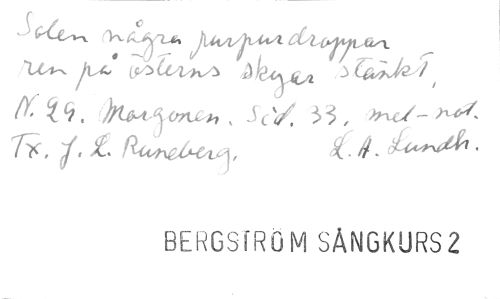 Solen några purpurdroppar
ren på österns skyar stänkt,
N. 29. Morgonen. Sid. 33. mel-not.
Tx. J. L. Runeberg. L. A. Lundh.
BERGSTRÖM SÅNGKURS 2